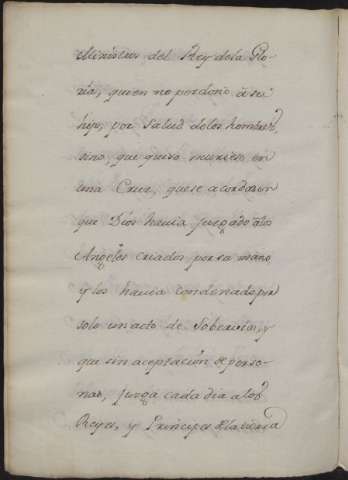 Ministros del Rey dela Glo-
ria, quien no perdonó à su
hijo, por salud delos hombres,
sino, que quiso muriese en
una Cruz, que se acordasen
que Dios havia juzgado alos
Angeles criados por su mano
y los havia condenado por
solo un acto de Sobervia, y
que sin aceptacion de perso-
nas, juzga cada dia a los
Reyes, y Principes dela tierra